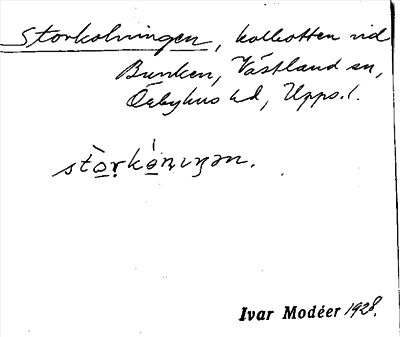 Storkolningen, kolbotten vid
Bunken, Västland sn,
Örbyhus hd, Upps. l.
Ivar Modéer 1928.